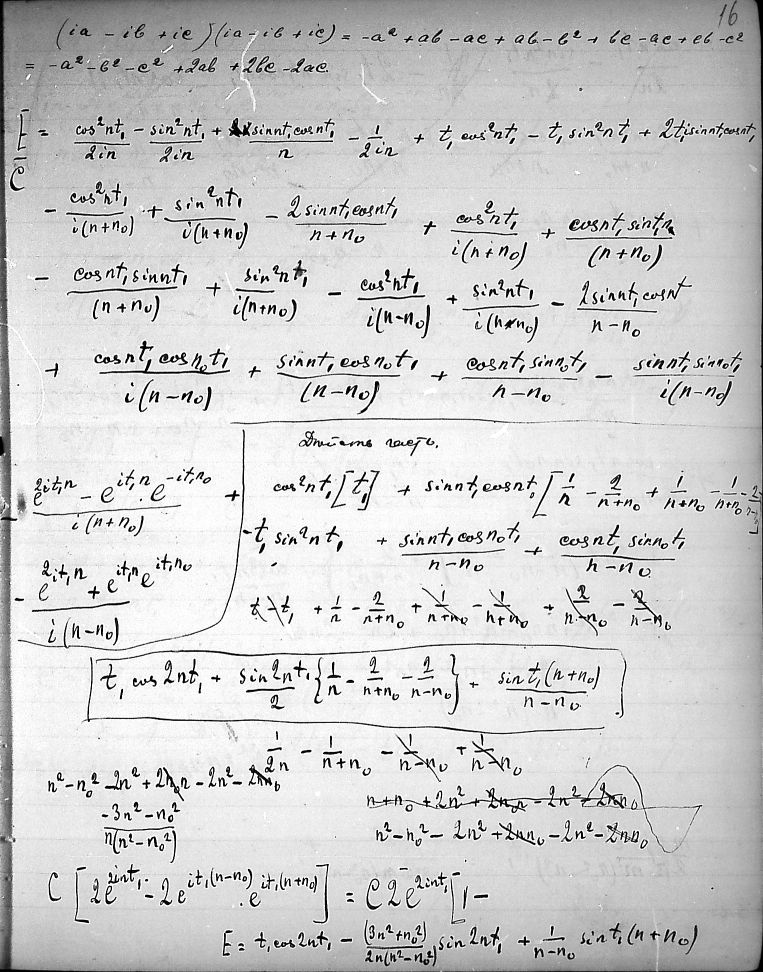 16
(ia - ib + ic)(ia - ib + ic) = -a² + ab - ac + ab - b² + bc - ac + cb - c²
= -a² - b² - c² + 2ab + 2bc - 2ac.
E/C = cos²nt₁/2in - sin²nt₁/2in + sinnt₁cosnt₁/n - 1/2in + t₁cos²nt₁ - t₁sin²nt₁ + 2t₁isinnt₁cosnt₁
- cos²nt₁/i(n+n₀) + sin²nt₁/i(n+n₀) - 2sinnt₁cosnt₁/n+n₀ + cos²nt₁/i(n+n₀) + cosnt₁sint₁n/(n+n₀)
- cosnt₁sinnt₁/(n+n₀) + sin²nt₁/i(n+n₀) - cos²nt₁/i(n-n₀) + sin²nt₁/i(n-n₀) - 2sinnt₁cosnt/n-n₀
+ cosnt₁cosn₀t₁/i(n-n₀) + sinnt₁cosn₀t₁/(n-n₀) + cosnt₁sinn₀t₁/n-n₀ - sinnt₁sinn₀t₁/i(n-n₀)
часть.
- e^{2it₁n} - e^{it₁n}·e^{-it₁n₀}/i(n+n₀) +
cos²nt₁[t₁] + sinnt₁cosnt₁[1/n - 2/n+n₀ + 1/n+n₀ - 1/n+n₀ - 2/n-n₀]
-t₁sin²nt₁ + sinnt₁cosn₀t₁/n-n₀ + cosnt₁sinn₀t₁/n-n₀
- e^{2it₁n} + e^{it₁n}e^{it₁n₀}/i(n-n₀)
t - t₁ + 1/n - 2/n+n₀ + 1/n+n₀ - 1/n+n₀ + 2/n-n₀ - 2/n-n₀
t₁cos2nt₁ + sin2nt₁/2 {1/n - 2/n+n₀ - 2/n-n₀} + sint₁(n+n₀)/n-n₀
1/2n - 1/n+n₀ - 1/n-n₀ + 1/n-n₀
n² - n₀² - 2n² + 2n₀n - 2n² - 2nn₀
n+n₀ + 2n² + 2nn - 2n² - 2nn₀
-3n² - n₀²/n(n²-n₀²)
n² - n₀² - 2n² + 2nn₀ - 2n² - 2nn₀
C[2e^{2int₁} - 2e^{it₁(n-n₀)}·e^{it₁(n+n₀)}] = C2e^{2int₁}[1 -
E = t₁cos2nt₁ - (3n²+n₀²)/2n(n²-n₀²) sin2nt₁ + 1/n-n₀ sint₁(n+n₀)